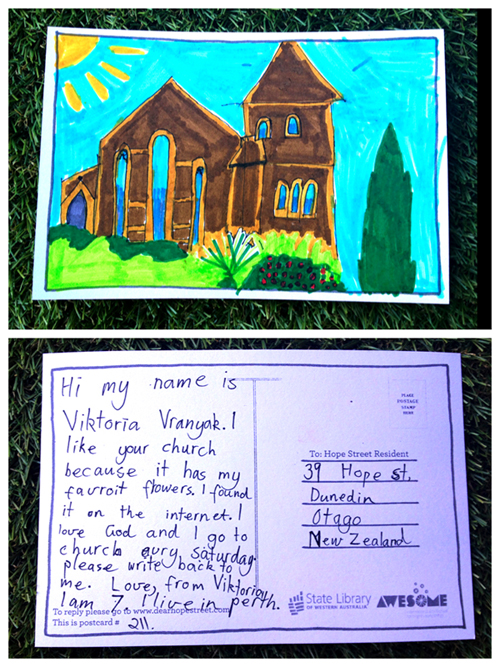 Hi my name is
Viktoria Vranyak. I
like your church
because it has my
favroit flowers. I found
it on the internet. I
love God and I go to
church evry saturday.
please write back to
me. Love, from Viktoria
I am 7. I live in perth.
To reply please go to www.dearhopestreet.com
This is postcard # 211.
PLACE
POSTAGE
STAMP
HERE
To: Hope Street Resident
39 Hope st.
Dunedin
Otago
New Zealand
State Library
OF WESTERN AUSTRALIA
AWESOME